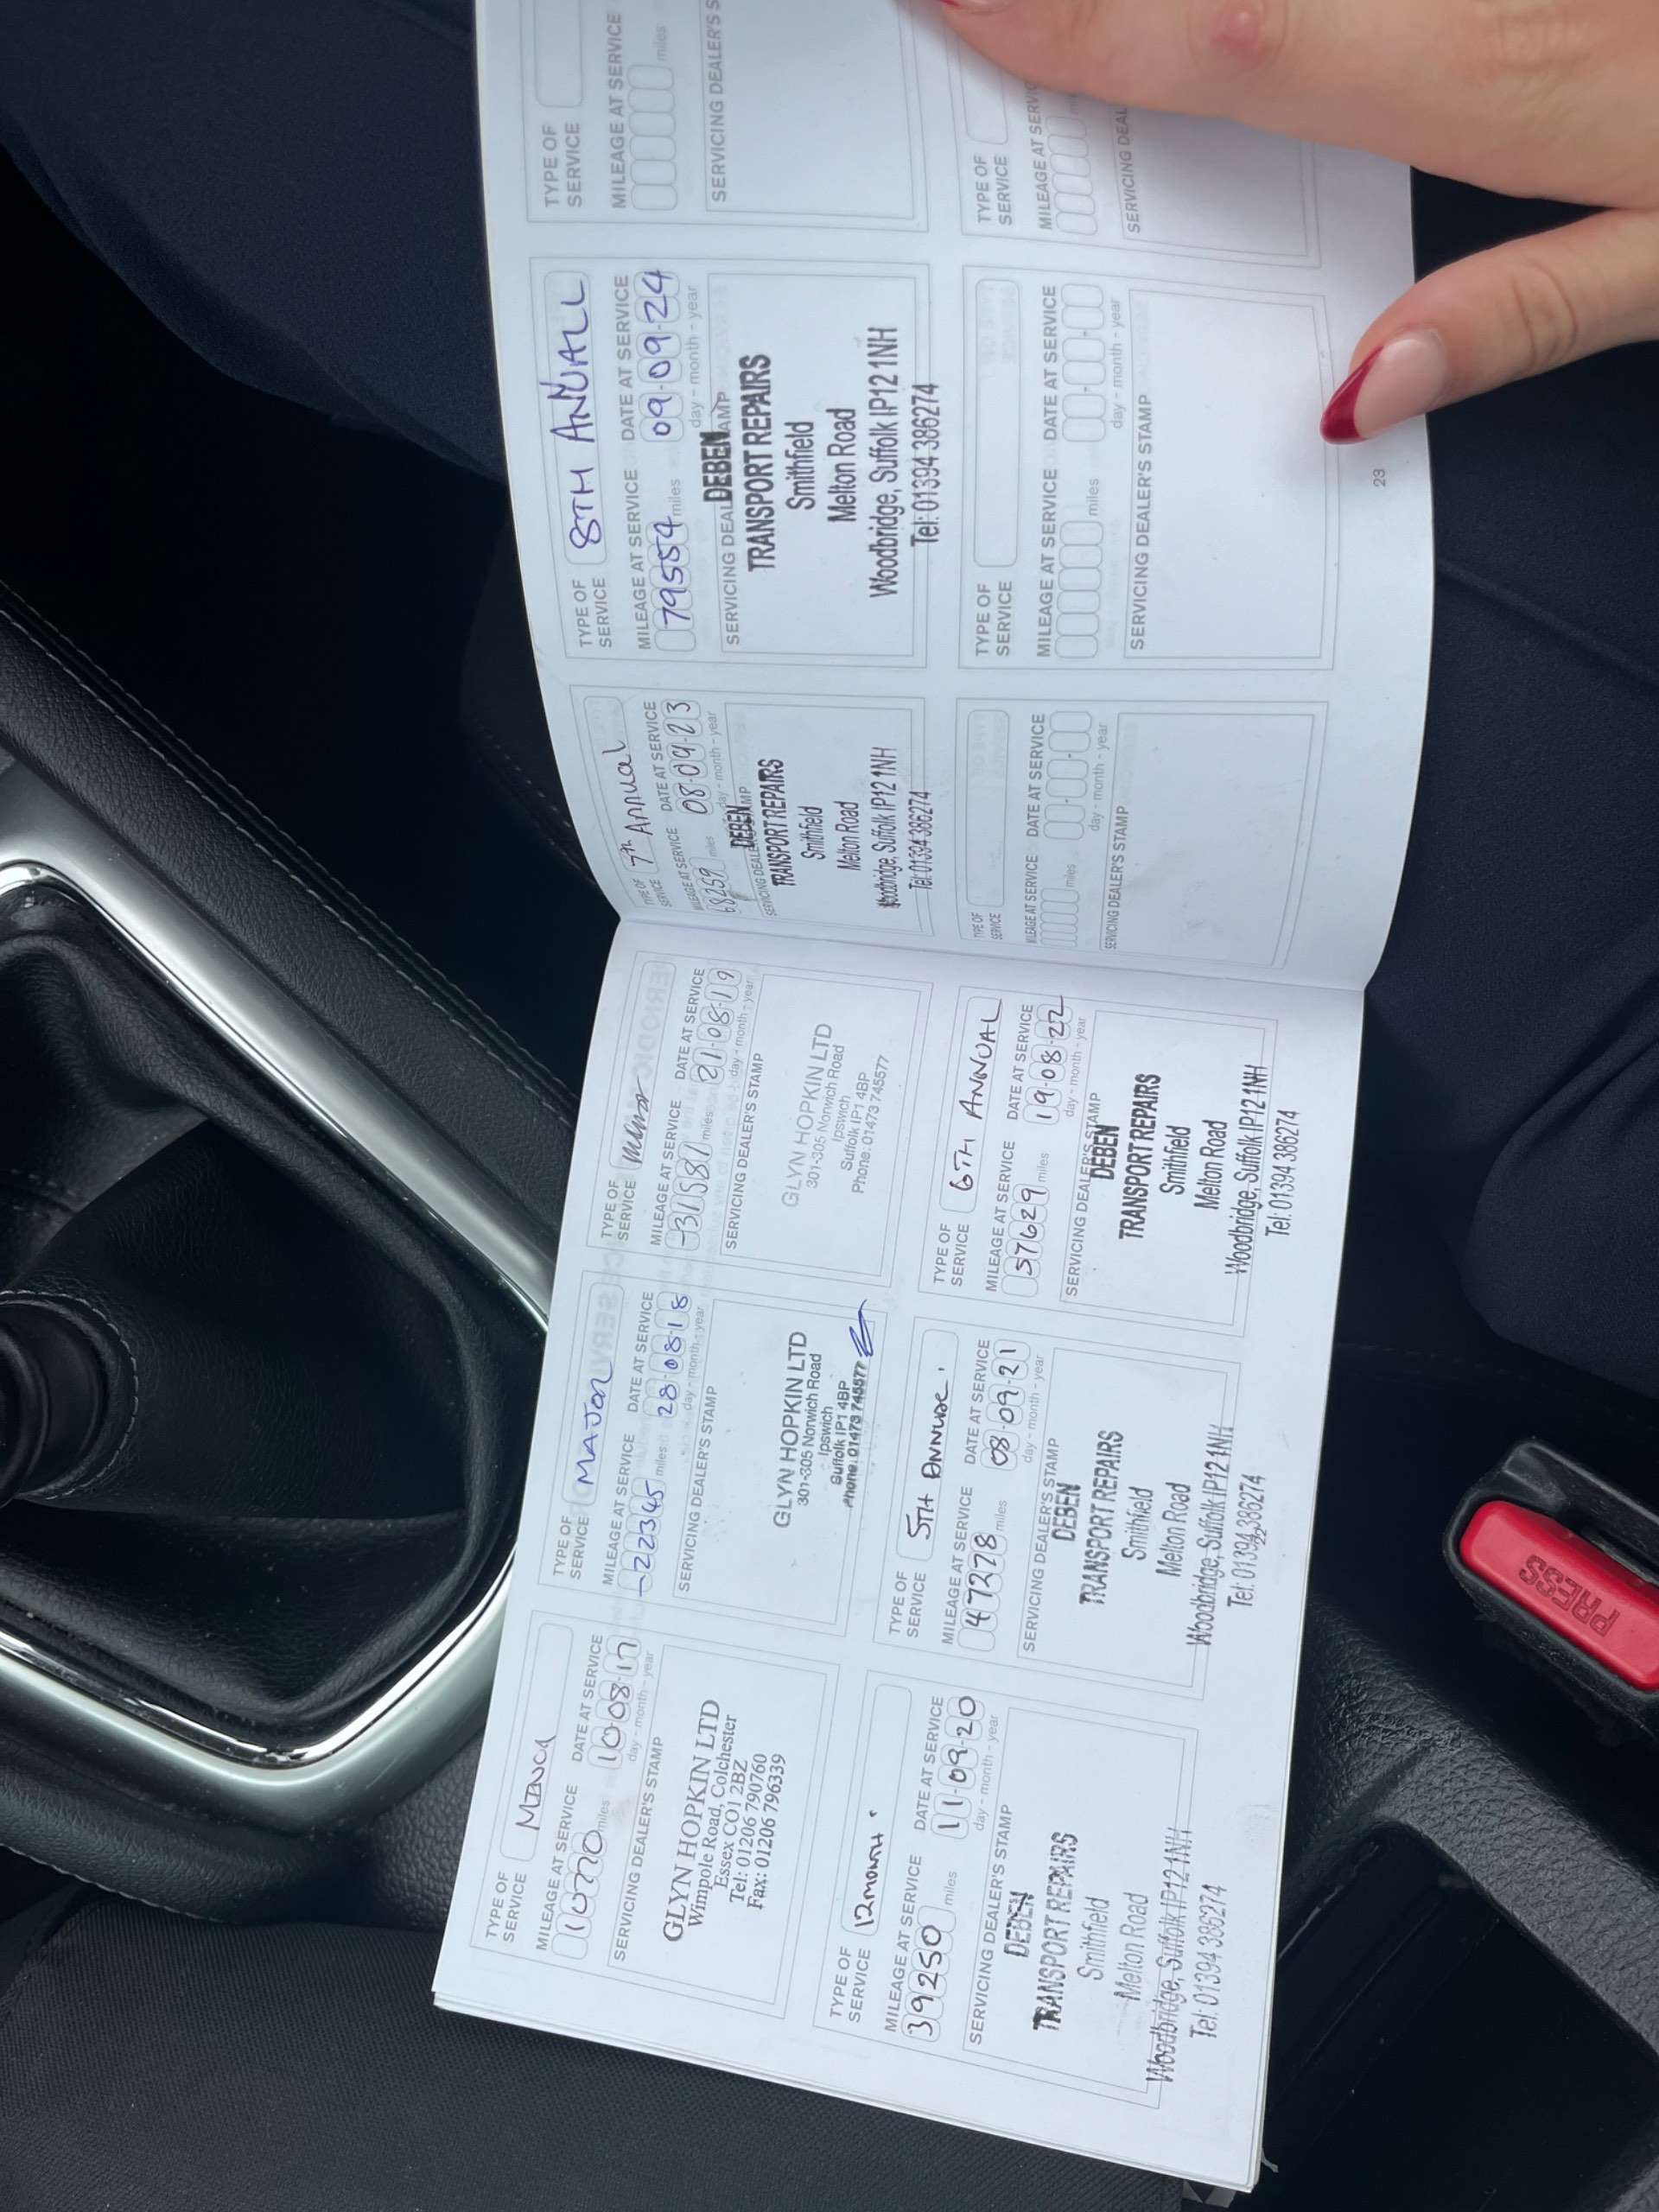 TYPE OF
SERVICE
MINOR
MILEAGE AT SERVICE DATE AT SERVICE
miles 10-08-17
day - month - year
SERVICING DEALER'S STAMP
GLYN HOPKIN LTD
Wimpole Road, Colchester
Essex CO1 2BZ
Tel: 01206 790760
Fax: 01206 796339
TYPE OF
SERVICE
MAJOR
MILEAGE AT SERVICE DATE AT SERVICE
-22345 miles 28-08-18
day - month - year
SERVICING DEALER'S STAMP
GLYN HOPKIN LTD
301-305 Norwich Road
Ipswich
Suffolk IP1 4BP
Phone: 01473 745577
TYPE OF
SERVICE
MILEAGE AT SERVICE DATE AT SERVICE
-31581 miles 21-08-19
day - month - year
SERVICING DEALER'S STAMP
GLYN HOPKIN LTD
301-305 Norwich Road
Ipswich
Suffolk IP1 4BP
Phone: 01473 745577
TYPE OF
SERVICE
12 MONTH
MILEAGE AT SERVICE DATE AT SERVICE
39250 miles 11-09-20
day - month - year
SERVICING DEALER'S STAMP
DEBEN
TRANSPORT REPAIRS
Smithfield
Melton Road
Woodbridge, Suffolk IP12 1NH
Tel: 01394 386274
TYPE OF
SERVICE
5TH ANNUAL.
MILEAGE AT SERVICE DATE AT SERVICE
47278 miles 08-09-21
day - month - year
SERVICING DEALER'S STAMP
DEBEN
TRANSPORT REPAIRS
Smithfield
Melton Road
Woodbridge, Suffolk IP12 1NH
Tel: 01394 386274
22
TYPE OF
SERVICE
6TH ANNUAL
MILEAGE AT SERVICE DATE AT SERVICE
57629 miles 19-08-22
day - month - year
SERVICING DEALER'S STAMP
DEBEN
TRANSPORT REPAIRS
Smithfield
Melton Road
Woodbridge, Suffolk IP12 1NH
Tel: 01394 386274
TYPE OF
SERVICE
7th Annual
MILEAGE AT SERVICE DATE AT SERVICE
68259 miles 08-09-23
day - month - year
SERVICING DEALE AMP
DEBEN
TRANSPORT REPAIRS
Smithfield
Melton Road
Woodbridge, Suffolk IP12 1NH
Tel: 01394 386274
TYPE OF
SERVICE
8TH ANUALL
MILEAGE AT SERVICE DATE AT SERVICE
79554 miles 09-09-24
day - month - year
SERVICING DEAL AMP
DEBEN
TRANSPORT REPAIRS
Smithfield
Melton Road
Woodbridge, Suffolk IP12 1NH
Tel: 01394 386274
TYPE OF
SERVICE
MILEAGE AT SERVICE
miles
SERVICING DEALER'S S
TYPE OF
SERVICE
MILEAGE AT SERVICE DATE AT SERVICE
miles
day - month - year
SERVICING DEALER'S STAMP
TYPE OF
SERVICE
MILEAGE AT SERVICE DATE AT SERVICE
miles
day - month - year
SERVICING DEALER'S STAMP
TYPE OF
SERVICE
MILEAGE AT SERVIC
SERVICING DEAL
23
PRESS